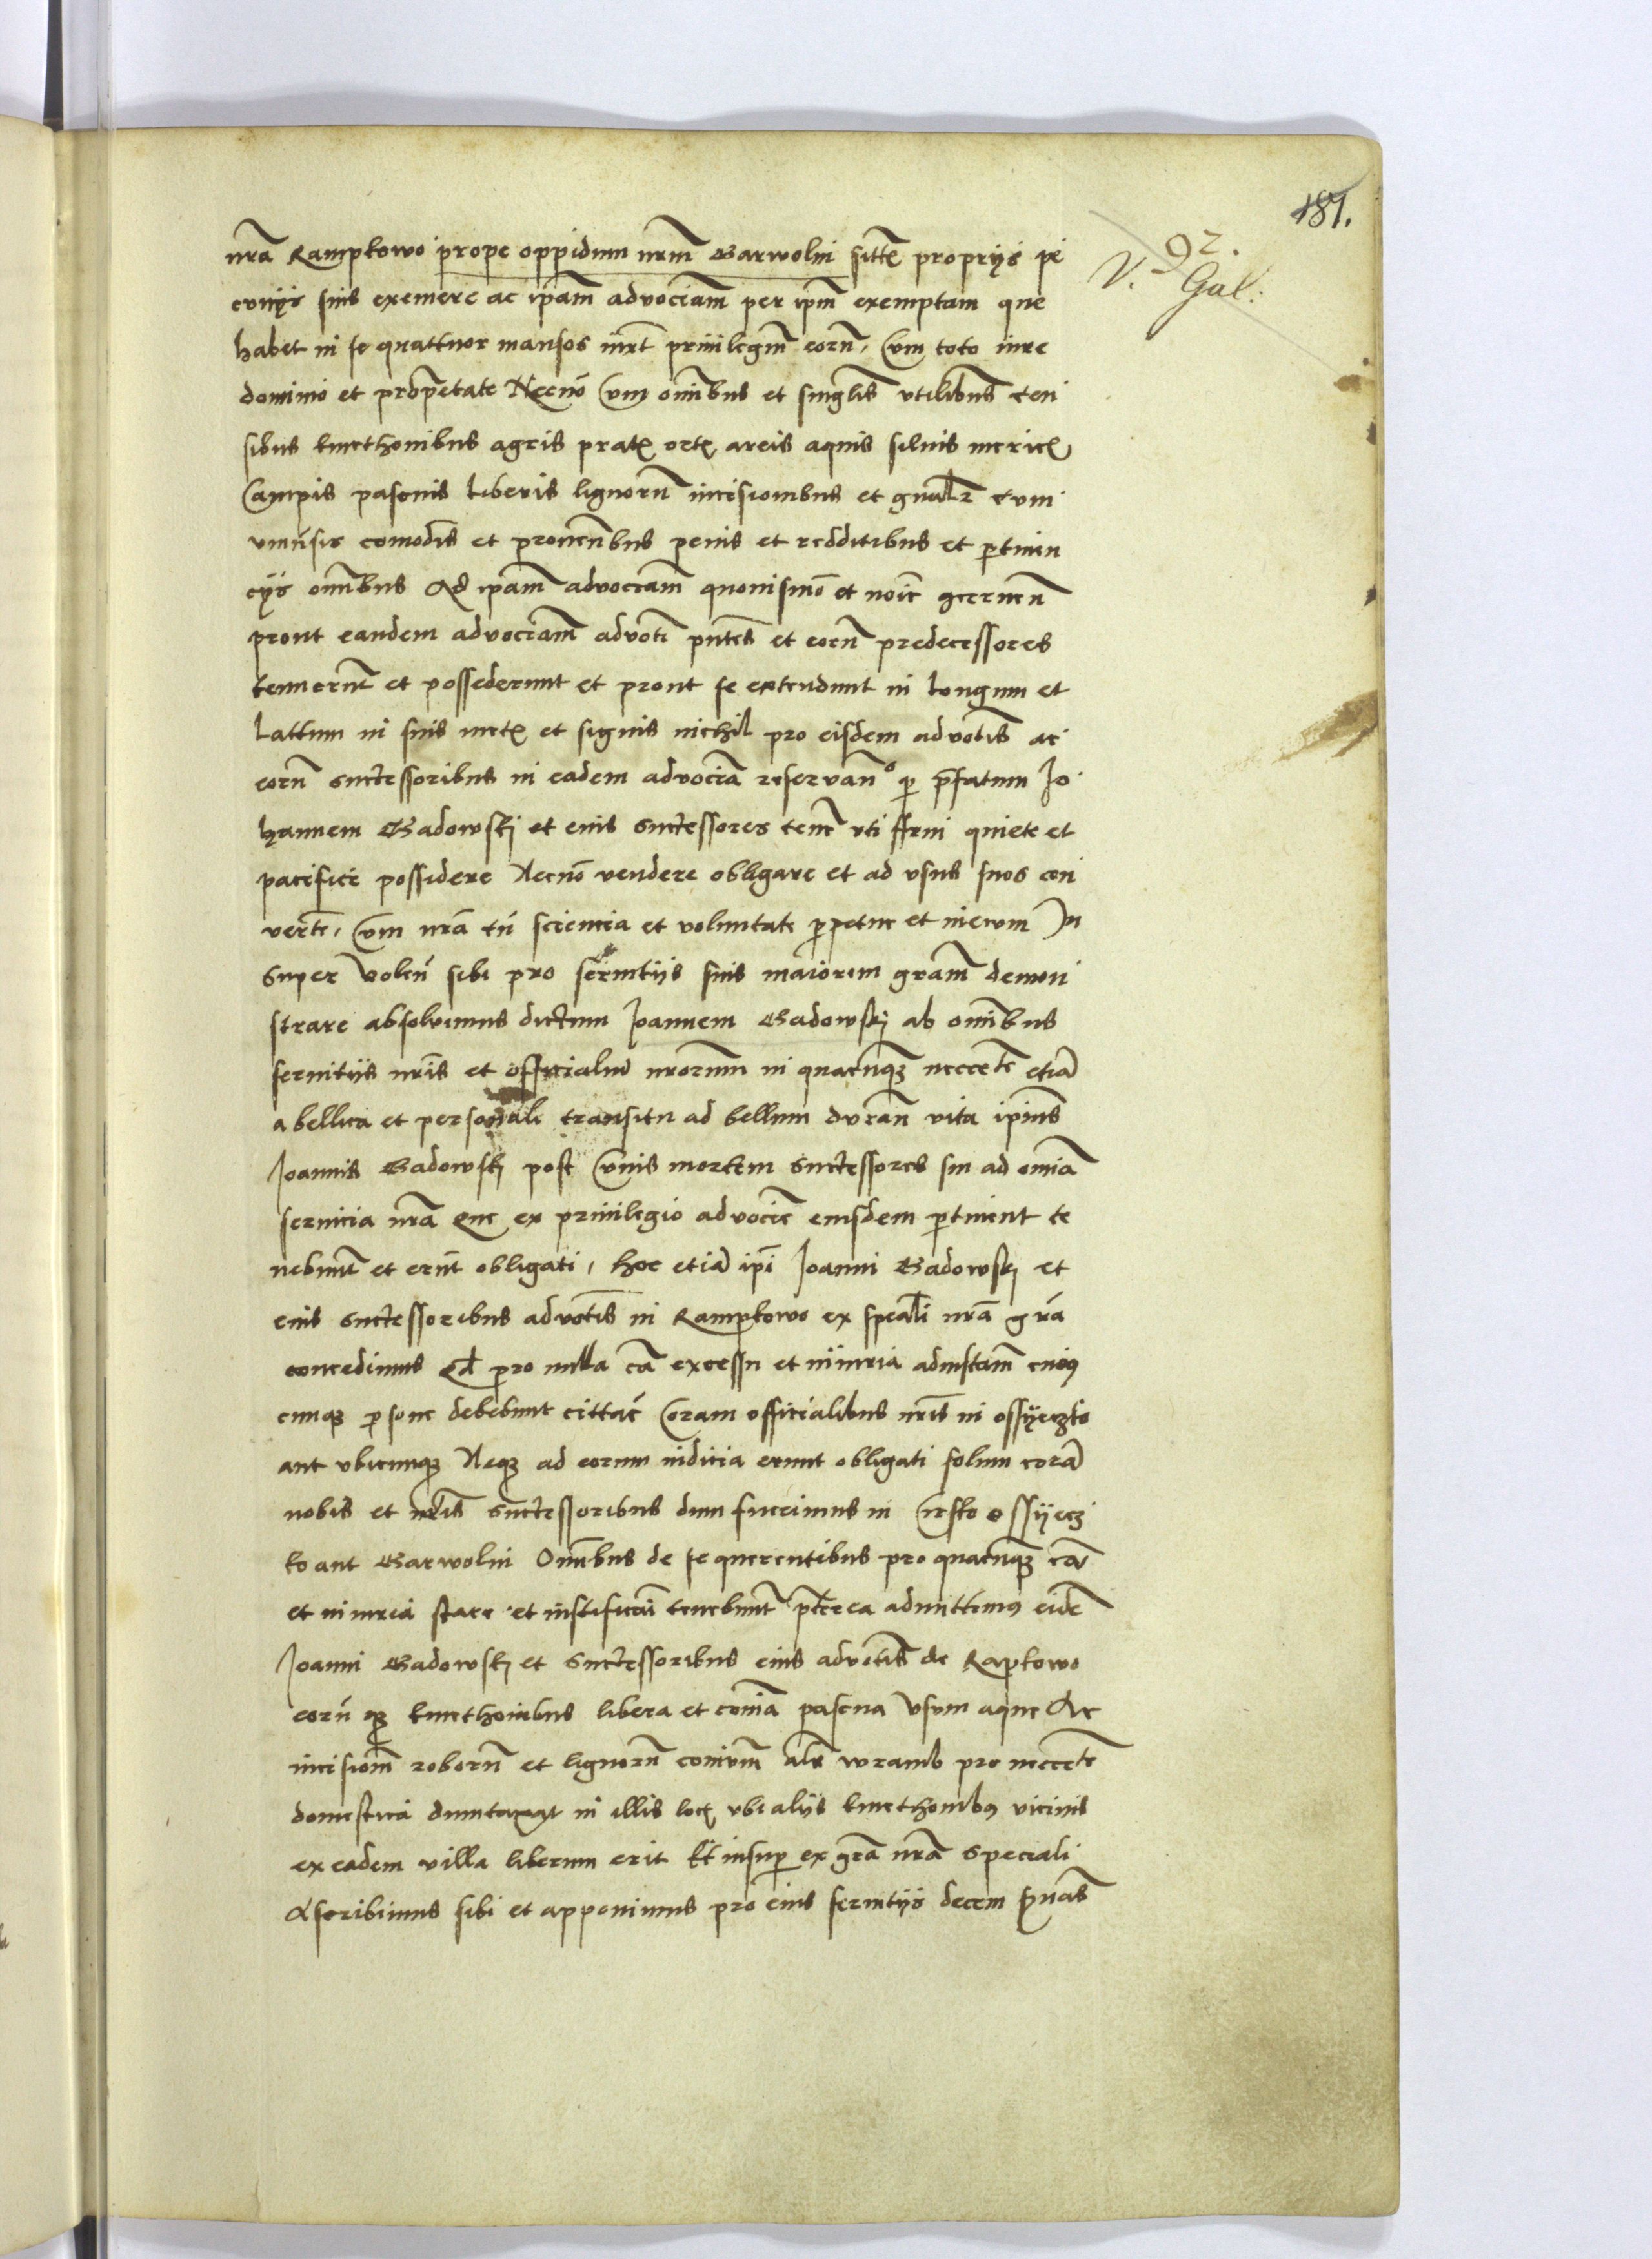 181.
92.
V. Gal:
nrã Ramptowo prope oppidum nrm̄ Garwolin sittē proprijs pe
cunijs suis exemere ac ipām advociam̄ per ipm̄ exemptam que
habet in se quattuor mansos iuxt privilegiū eorū, Cum toto iure
dominio et proprietate Necnō Cum om̄ibus et singlis vtilibus Cen
sibus kmethonibus agris pratis ortis areis aquis siluis mericis
Campis pascuis liberis lignorū incisionibus et gnalr cum
vniūsis comodis et prouenibus penis et redditibus et pertinen
cijs om̄ibus Ad ipam̄ advociam̄ quouismō et noīe concernen
prout eandem advociam̄ advoti pn̄tes et eorū predecessores
tenuerūt et possederunt et prout se extendunt in Longum et
Lattum in suis metis et signis nichil pro eisdem advotis ac
eorū successoribus in eadem advocia reservan̄ per prefatum Jo
hannem Gadowskj et eius successores tene vti frui quiete et
pacifice possidere Necnō vendere obligare et ad vsus suos con
verte, Cum nrã tn̄ sciencia et voluntate perpetue et in evum In
super Volen̄ sibi pro seruitijs suis maiorem gram̄ demon
strare absolvimus dictum Joannem Gadowskj ab om̄ibus
seruitijs nrīs et officialiū nrorum in quacūque neccete etiā
a bellica et personali transitu ad bellum durañ vita ipius
Joannis Gadowskj post Cuius mortem successores sui ad omia
seruicia nrã que ex privilegio advocie eiusdem pertinent te
nebunt et erūt obligati, hoc etiā ipi Joanni Gadowskj et
eius successoribus advotis in Ramptowo ex speali nrã grã
concedimus Qd pro nulla cã excessu et iniuria ad instam̄ cuius
cunque persone debebunt cittari Coram officialibus nrīs in ossyeczko
aut vbicunque Neque ad eorum iudicia erunt obligati solum corã
nobis et nrīs successoribus dum fuerimus in Czrsko ossyecz
ko aut Garwolin Om̄ibus de se querentibus pro quacūque cã
et iniuria stare et iustificari tenebunt preterea admittimus eidē
Joanni Gadowskj et successoribus eius advotis de Raptowo
eorūque kmethonibus libera et comia pascua Vsum aque Ac
incisionem roborū et lignorū comunium als wramb pro neccete
domestica dumtaxat in illis locis vbi alijs kmethonibus vicinis
ex eadem villa liberum erit Et insuper ex grã nrã speciali
Ascribimus sibi et apponimus pro eius seruitijs decem sexnas